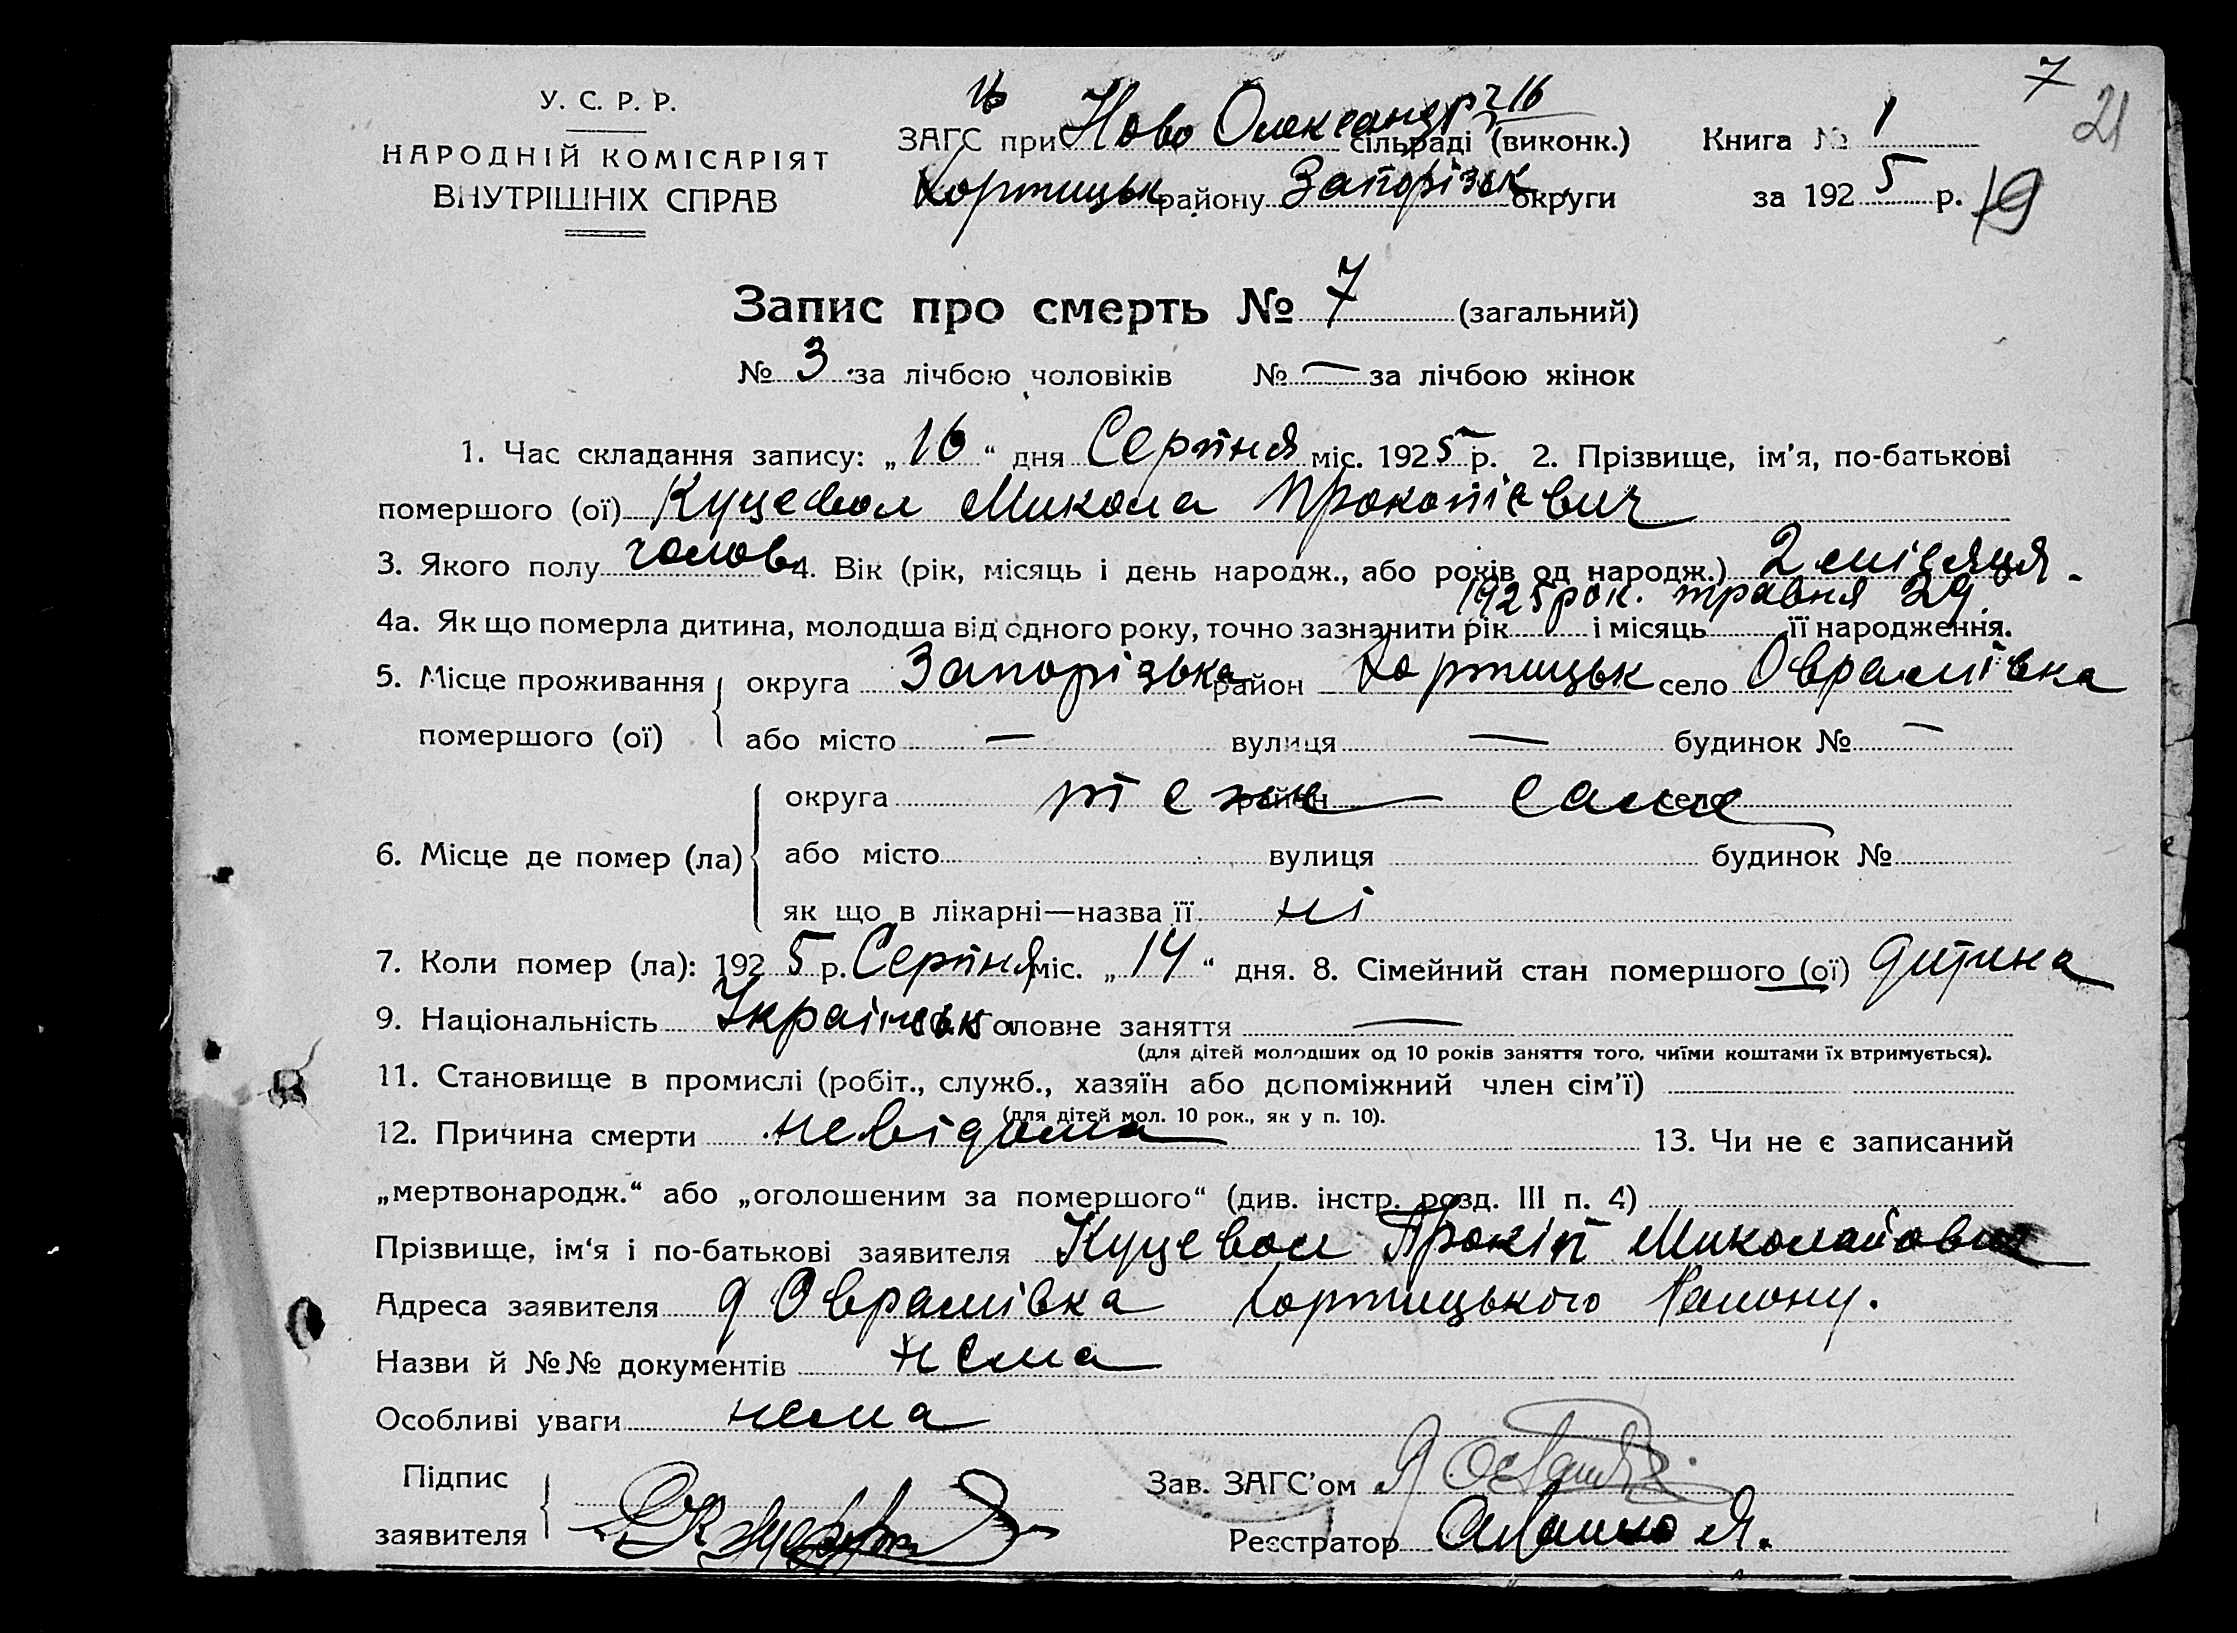 7
21
У. С. Р. Р.
НАРОДНІЙ КОМІСАРІЯТ
ВНУТРІШНІХ СПРАВ
ЗАГС при Ново Олександр сільраді (виконк.)
Хортицьк району Запорізьк округи
Книга № 1
за 1925 р.
19
Запис про смерть № 7 (загальний)
№ 3 за лічбою чоловіків № — за лічбою жінок
1. Час складання запису: „16“ дня Серпня міс. 1925 р. 2. Прізвище, ім'я, по-батькові
помершого (ої) Куцевол Микола Прокопієвич
3. Якого полу чолов 4. Вік (рік, місяць і день народж., або років од народж.) 2 місяця.
1925 рок. травня 29.
4а. Як що померла дитина, молодша від одного року, точно зазначити рік і місяць її народження.
5. Місце проживання округа Запорізька район Хортицьк село Овраміівка
помершого (ої) або місто — вулиця — будинок № —
округа теж район саме село
6. Місце де помер (ла) або місто вулиця будинок №
як що в лікарні—назва її ні
7. Коли помер (ла): 1925 р. Серпня міс. „14“ дня. 8. Сімейний стан помершого (ої) дитина
9. Національність Українська Головне заняття —
(для дітей молодших од 10 років заняття того, чиїми коштами їх втримується).
11. Становище в промислі (робіт., служб., хазяїн або допоміжний член сім'ї)
(для дітей мол. 10 рок., як у п. 10).
12. Причина смерти невідома 13. Чи не є записаний
„мертвонародж.“ або „оголошеним за помершого“ (див. інстр. розд. III п. 4)
Прізвище, ім'я і по-батькові заявителя Куцевол Прокіп Миколайович
Адреса заявителя д Оврамівка Хортицького Району.
Назви й №№ документів нема
Особливі уваги нема
Підпис
заявителя
Зав. ЗАГС'ом
Реєстратор